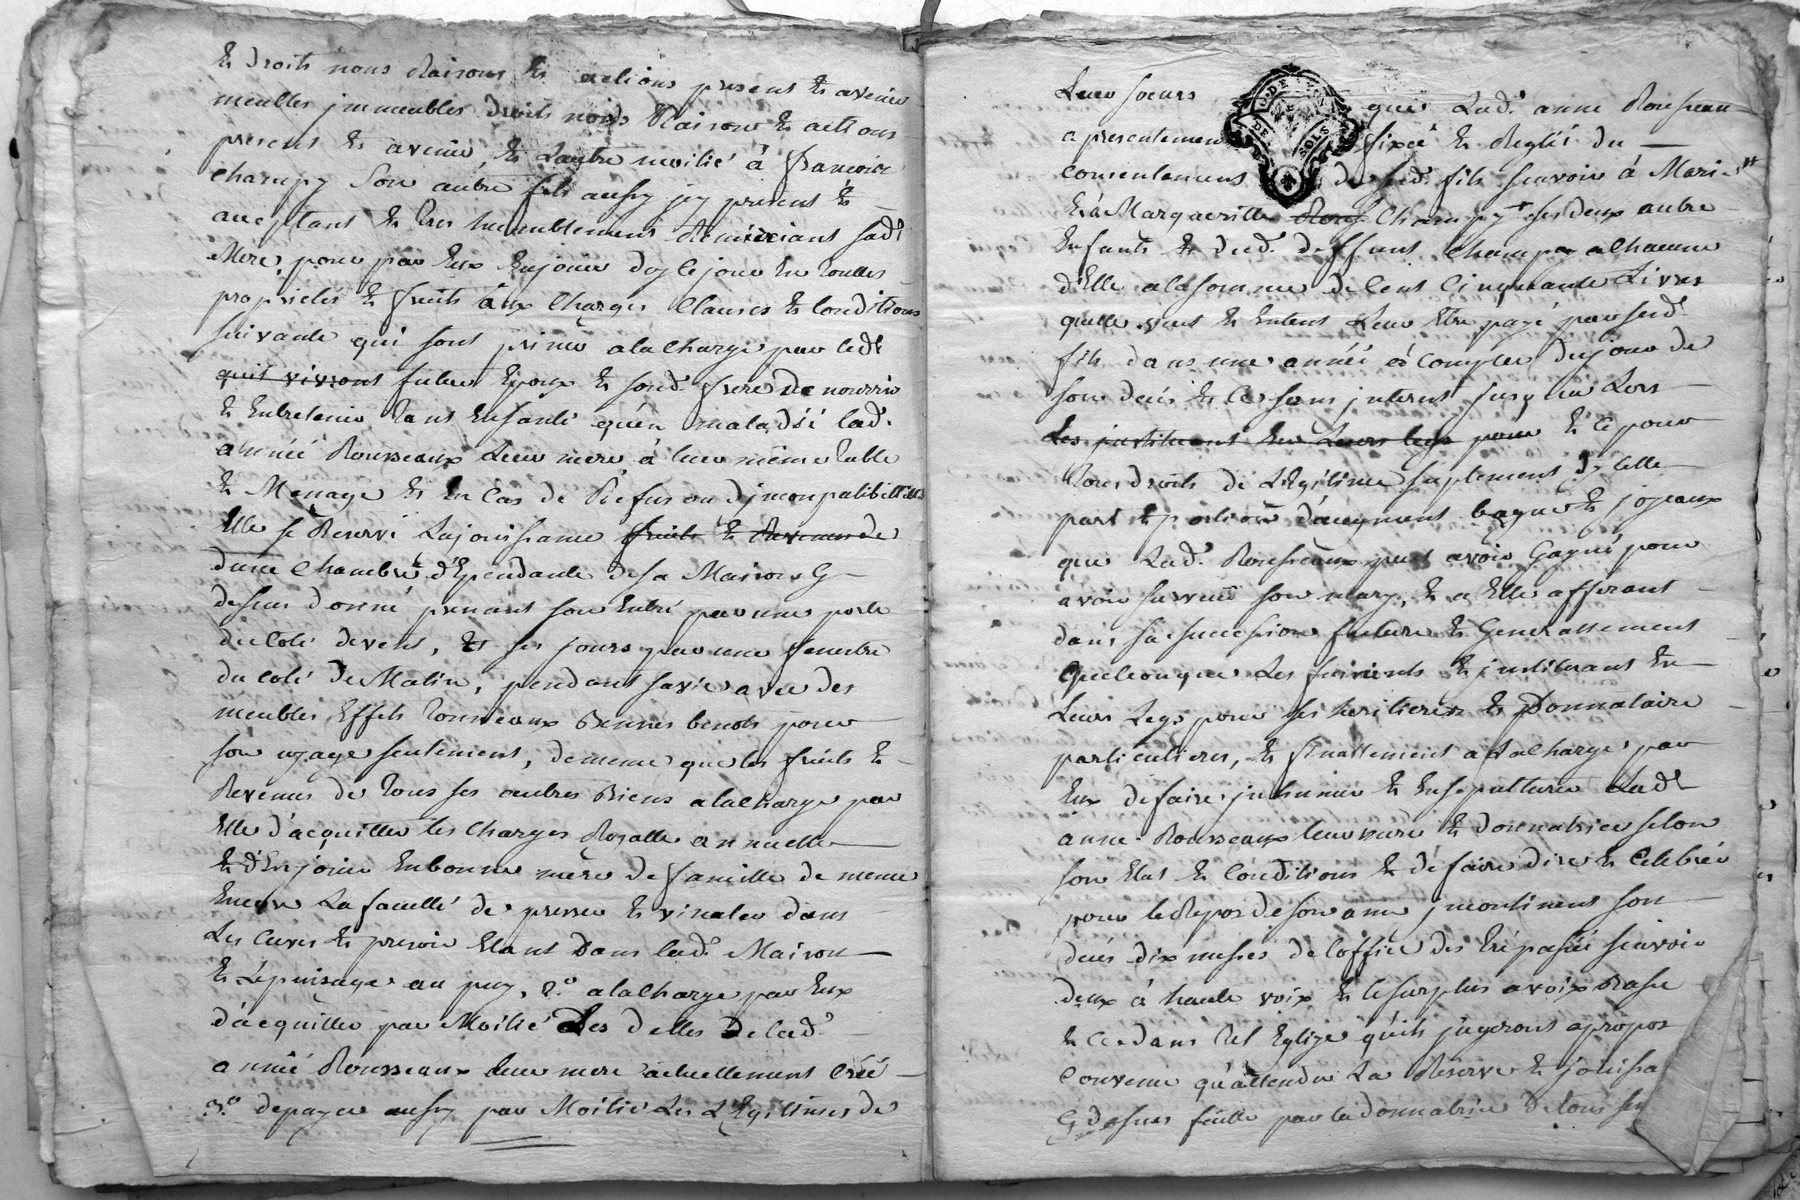 Et droits noms Raisons Et actions present Et avenir
meubles jmmeubles droits noms Raisons Et actions
present Et avenir, Et Lautre moitié à françois
champy Son autre fils aussy jcy present Et
acceptant Et tres humblement Remerciant sadt
Mere, pour par Eux Enjouir dez cejour En toutes
proprietés Et fruits aux Charges Clauses Et Conditions
suivante qui sont primo alacharge par ledt
quil vivront futur Epoux Et sond. frere de nourrir
Et Entretenir tant Ensanté qu'en maladié lad.
anné Rousseaux Leur mere à leur même table
Et Menage Et En Cas de Refus ou djncompatibilité
Elle se Reserve Lajouissance fruits Et Revenus de
dune Chambre dEpendante de sa Maison Cy
dessus donné prenant son Entré par une porte
du Coté devent, Et ses jours par une fenestre
du Coté de Matin, pendant savie avec des
meubles Effets tonneaux Bennes benots pour
son usage seulement, demême que les fruits Et
Revenus de tous ses autres Biens alacharge par
Elle d'acquitter les Charges Royalle annuelle
Et d'En jouir Enbonne mere de famille de meme
Encore La faculté de presser Et vinaler dans
Les Cuves Et pressoir Etant Dans lad. Maison
Et Lepuisage au puy, 2.º alacharge par Eux
d'acquitter par Moitié Les dettes De lad.
année Rousseaux leur mere actuellement Créé
3.º depayer aussy par Moitié Les LEgitimes de
Leur soeurs que Lad. anne Rousseau
a presentement fixée Et Reglée du
consentement de sesd. fils scavoir à Marie
Et à Marguerite Rous Champy + ses deux autre
Enfants Et dud. deffunt Champy alhacune
dElle alasomme de Cent Cinquante Livres
quelle veut Et Entent Leur Etre payé par sesd.
fils dans une année à Compter dujour de
son decés Et Ce sans jnterest jusqu'a Lors
Les jnstituant En Leurs legs pour Et Ce pour
tous droits de LEgitime suplement d'jcelle
part Et portion d'augment bague Et joyeaux
que Lad. Rousseaux peut avoir Gagné pour
avoir survecu son mary, Et a Elle afferant
dans sa succession future Et Generallement
Quelconque Les faisants Et jnstituant En
Leurs Legs pour ses heritieres Et Donnataire
particulieres, Et finallement a Lacharge par
Eux defaire jnhumer Et Ensepulturer Ladt
anne Rousseaux leur mere Et donnatrice selon
son Etat Et Conditions Et de faire dire Et Celebrér
pour leRepos de son ame jncontinent son
decés dix messes de Loffice des trépassés scavoir
deux à haute voix Et lesurplus avoix Basse
Et Ce dans tel Eglize qu'ils jugeront apropos
Convenu qu'attendu La Reserve Et jouissa
Cy dessus faitte par ladonnatrice De tous ses